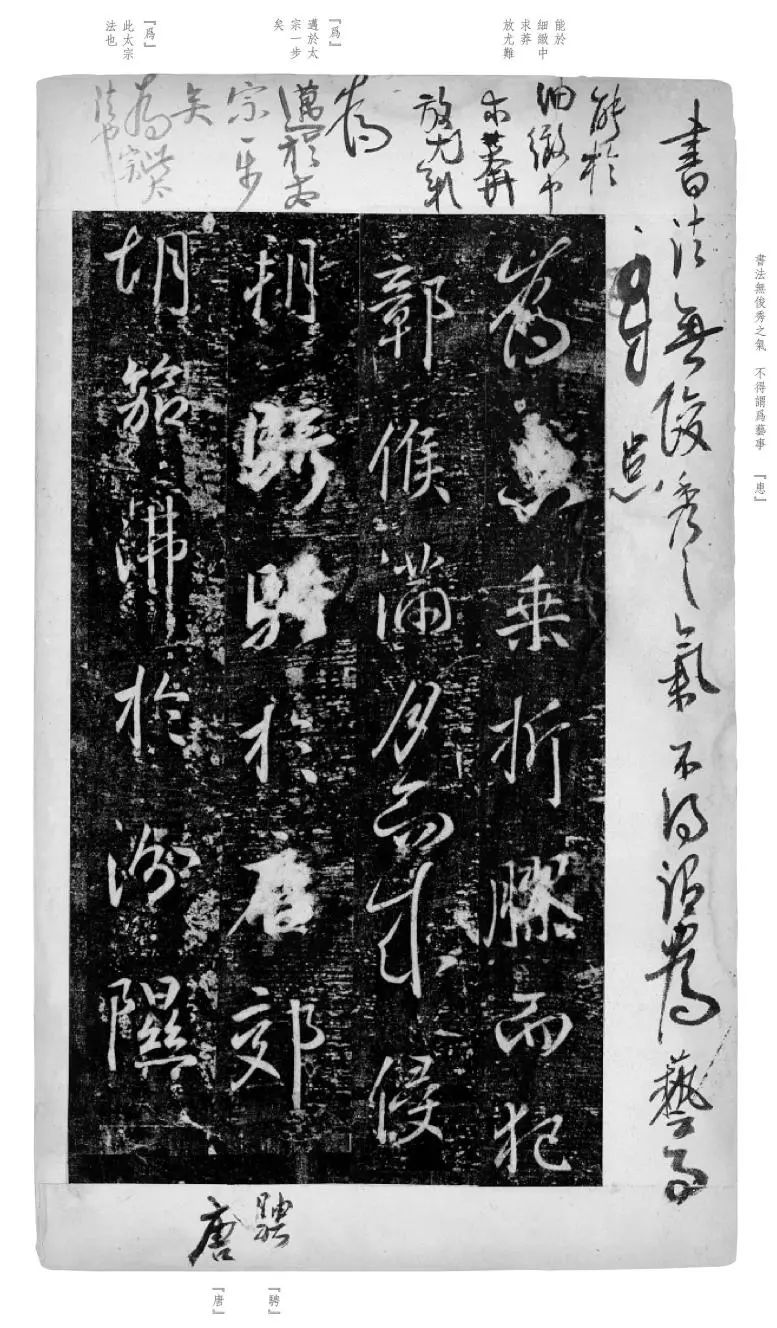 書法無俊秀之氣　不得謂爲藝事　『患』
能於
細緻中
求莽
放尤難
『爲』
邁於太
宗一步
矣
『爲』
此太宗
法也
書法無俊秀之氣不得謂為藝事
患
能於
細緻中
求莽
放尤難
為
邁於太
宗一步
矣
為此太宗
法也
為患乘折膠而犯
鄣候滿月而來侵
朔騎騁於唐郊
胡笳沸於汾隰
騁
唐
『騁』
『唐』